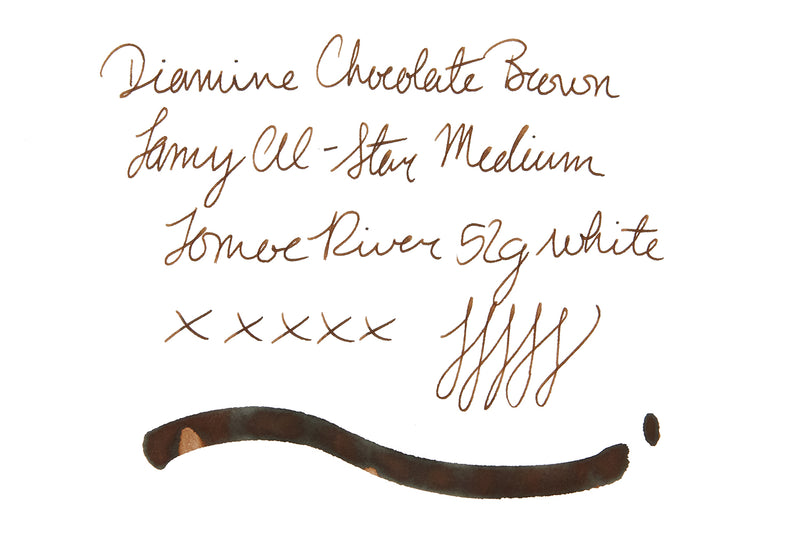 Diamine Chocolate Brown
Lamy Al-Star Medium
Tomoe River 52g white
x x x x x